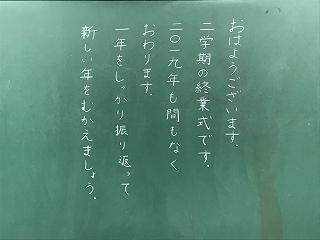 おはようございます.
二学期の終業式です.
二〇一九年も間もなく
おわります.
一年をしっかり振り返って
新しい年をむかえましょう.